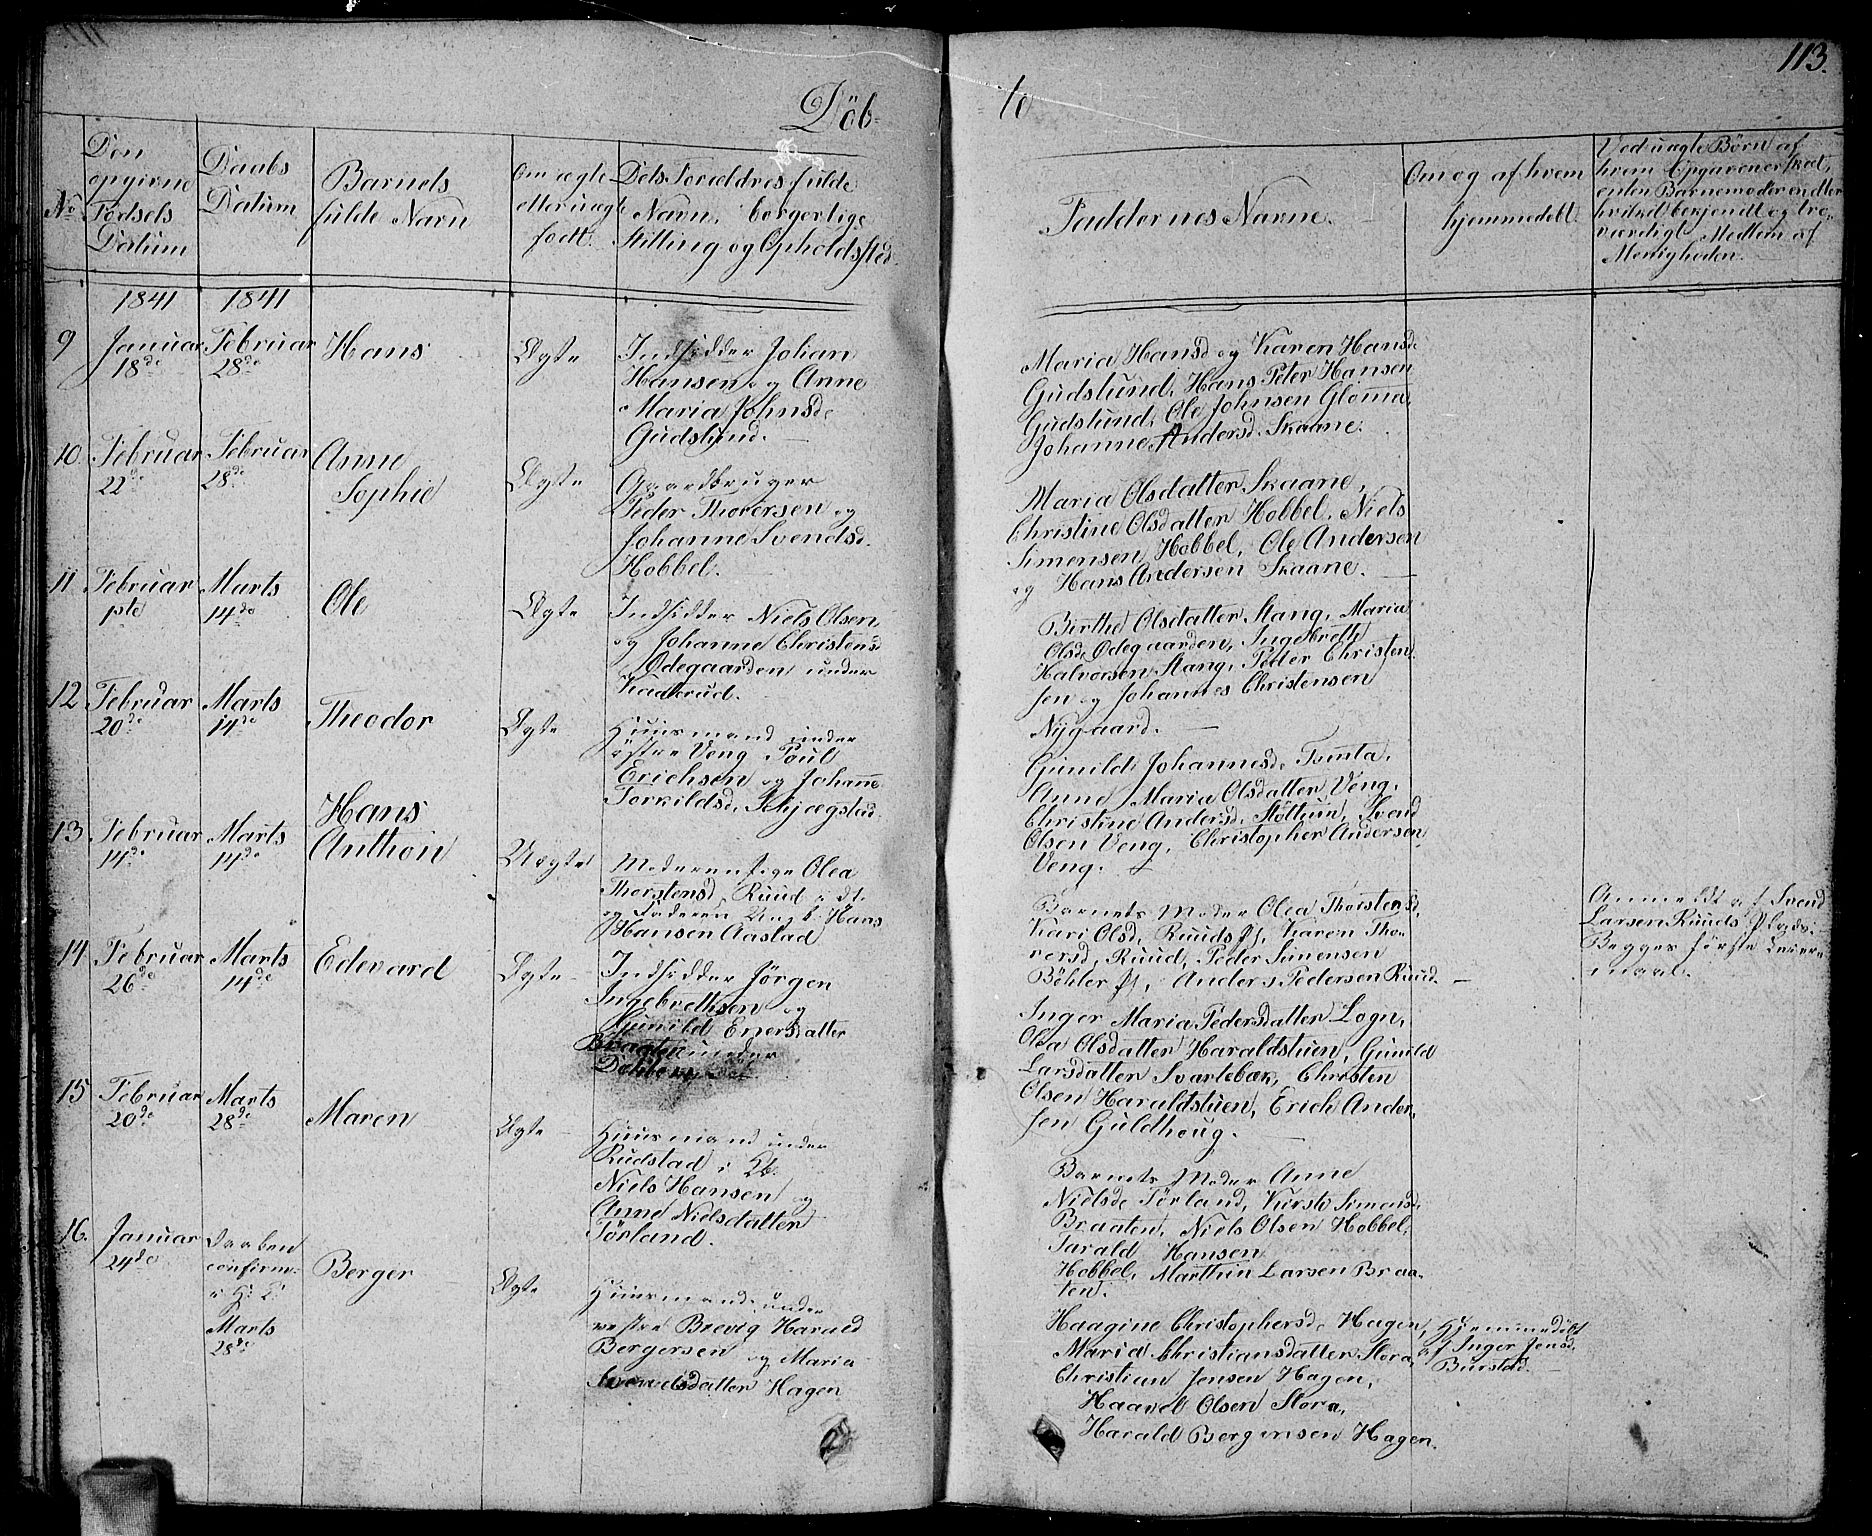 113.
Döb-
te
No
Den
opgivne
Födsels
Datum
Daabs
Datum
Barnets
fulde Navn
Om ægte
eller uægte
født.
Dets Forældres fulde
Navn, borgerlige
Stilling og Opholdssted.
Faddernes Navne.
Om og af hvem
hjemmedøbt
Ved uægte Börn af
hvem Opgaven er skeet,
enten Barnemoderen eller
hvilket bekjendt og tro-
værdigt Medlem af
Menigheden.
1841
1841
9
Januar
18de
Februar
28de
Hans
Ægte
Indsidder Johan
Hansen og Anne
Maria Johnsd.
Gudslund.
Maria Hansd og Karen Hansd.
Gudslund, Hans Peter Hansen
Gudslund, Ole Johnsen Glomma,
Johanne Andersd. Skaane.
10.
Februar
22de
Februar
28de
Anne
Sophie
Ægte
Gaardbruger
Peder Thorersen og
Johanne Svendsd.
Hobbel.
Maria Olsdatter Skaane,
Christine Olsdatter Hobbel, Niels
Simensen Hobbel, Ole Andersen
og Hans Andersen Skaane.
11.
Februar
1ste
Marts
14de
Ole
Ægte
Indsidder Niels Olsen
og Johanne Christensd
Ødegaarden under
Kaaterud.
Berthe Olsdatter Stang, Maria
Olsd. Ødegaarden, Ingebreth
Halvorsen Stang, Peder Christen-
sen og Johannes Christensen
Nygaard.
12
Februar
20de
Marts
14de
Theodor
Ægte
Huusmand under
østre Veng Poul
Erichsen og Johanne
Torkildsd. Schjægstad.
Gunild Johannesd. Tomta,
Anne Maria Olsdatter Veng,
Christine Andersd. Støttum, Svend
Olsen Veng, Christopher Andersen
Veng.
13
Februar
14de
Marts
14de
Hans
Anthon
Uægte
Moderen Pige Olea
Thorstensd. Ruud
og Faderen Ungk. Hans
Hansen Aastad
Barnets Moder Olea Thorstensd,
Kari Olsd, Ruuds Pl, Karen Tho-
rersd, Ruud, Peder Simensen
Böhler Pl, Anders Pedersen Ruud.
Anmeldt af Svend
Larsen Ruuds Plads.
Begges første Leier-
maal.
14
Februar
26de
Marts
14de
Edevard
Ægte
Indsidder Jørgen
Ingebrethsen og
Gunild Enersdatter
Braaten under
Maria
Inger Maria Pedersdatter Logn,
Olea Olsdatter Haraldstuen, Gunild
Larsdatter Svartebæk, Christen
Olsen Haraldstuen, Erich Ander-
sen Guldhoug.
15
Februar
20de
Marts
28de
Maren
Ægte
Huusmand under
Rudstad i
Niels Hansen og
Anne Nielsdatter
Törland.
Barnets Moder Anne
Nielsd. Törland, Kirsti Simensd.
Braaten, Niels Olsen Hobbel,
Tarald Hansen
Hobbel, Marthin Larsen Braa-
ten.
16.
Januar
24de
Daaben
confirm.
i H. K.
Marts
28de
Berger
Ægte
Huusmand under
vestre Brevig Harald
Bergersen og Maria
Hagen
Haagine Christophersd. Hagen,
Maria Christiansdatter Stora,
Christian Jensen Hagen,
Haavel Olsen Stora,
Harald Bergersen Hagen.
Hjemmedøbt
af Inger Jensd.
Burstad.